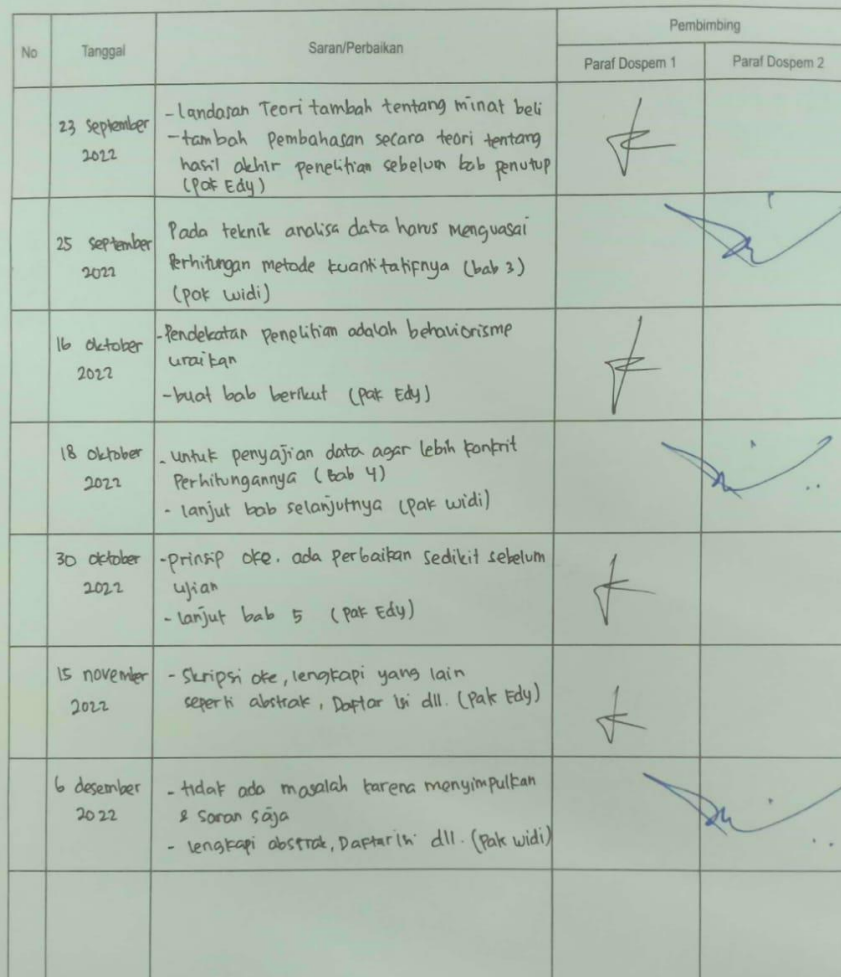 No Tanggal Saran/Perbaikan Pembimbing
Paraf Dospem 1 Paraf Dospem 2
23 September
2022
- Landasan Teori tambah tentang minat beli
- tambah Pembahasan secara teori tentang
hasil akhir penelitian sebelum bab penutup
(Pak Edy)
25 September
2022
Pada teknik analisa data harus menguasai
Perhitungan metode kuantitatifnya (bab 3)
(pak widi)
16 oktober
2022
- Pendekatan penelitian adalah behaviorisme
uraikan
- buat bab berikut (Pak Edy)
18 Oktober
2022
- untuk penyajian data agar lebih konkrit
Perhitungannya (Bab 4)
- lanjut bab selanjutnya (Pak widi)
30 oktober
2022
- prinsip oke. ada perbaikan sedikit sebelum
ujian
- lanjut bab 5 (Pak Edy)
15 november
2022
- Skripsi oke, lengkapi yang lain
seperti abstrak, Daftar isi dll. (Pak Edy)
6 desember
2022
- tidak ada masalah karena menyimpulkan
& saran saja
- lengkapi abstrak, Daftar isi dll. (Pak widi)